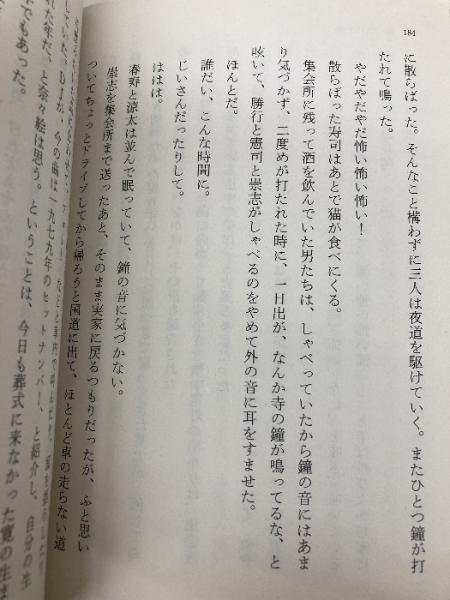 184
に散らばった。そんなこと構わずに三人は夜道を駆けていく。またひとつ鐘が打
たれて鳴った。
やだやだやだ怖い怖い怖い!
散らばった寿司はあとで猫が食べにくる。
集会所に残って酒を飲んでいた男たちは、しゃべっていたから鐘の音にはあま
り気づかず、二度めが打たれた時に、一日出が、なんか寺の鐘が鳴ってるな、と
呟いて、勝行と憲司と崇志がしゃべるのをやめて外の音に耳をすませた。
ほんとだ。
誰だい、こんな時間に。
じいさんだったりして。
ははは。
春野と涼太は並んで眠っていて、鐘の音に気づかない。
崇志を集会所まで送ったあと、そのまま実家に戻るつもりだったが、ふと思い
ついてちょっとドライブしてから帰ろうと国道に出て、ほとんど車の走らない道
DJが、今の曲は一九七九年のヒットナンバー、と紹介し、自分の生
れた年だ、と奈々絵は思う。ということは、今日も葬式に来なかった寛の生ま
でもあった。